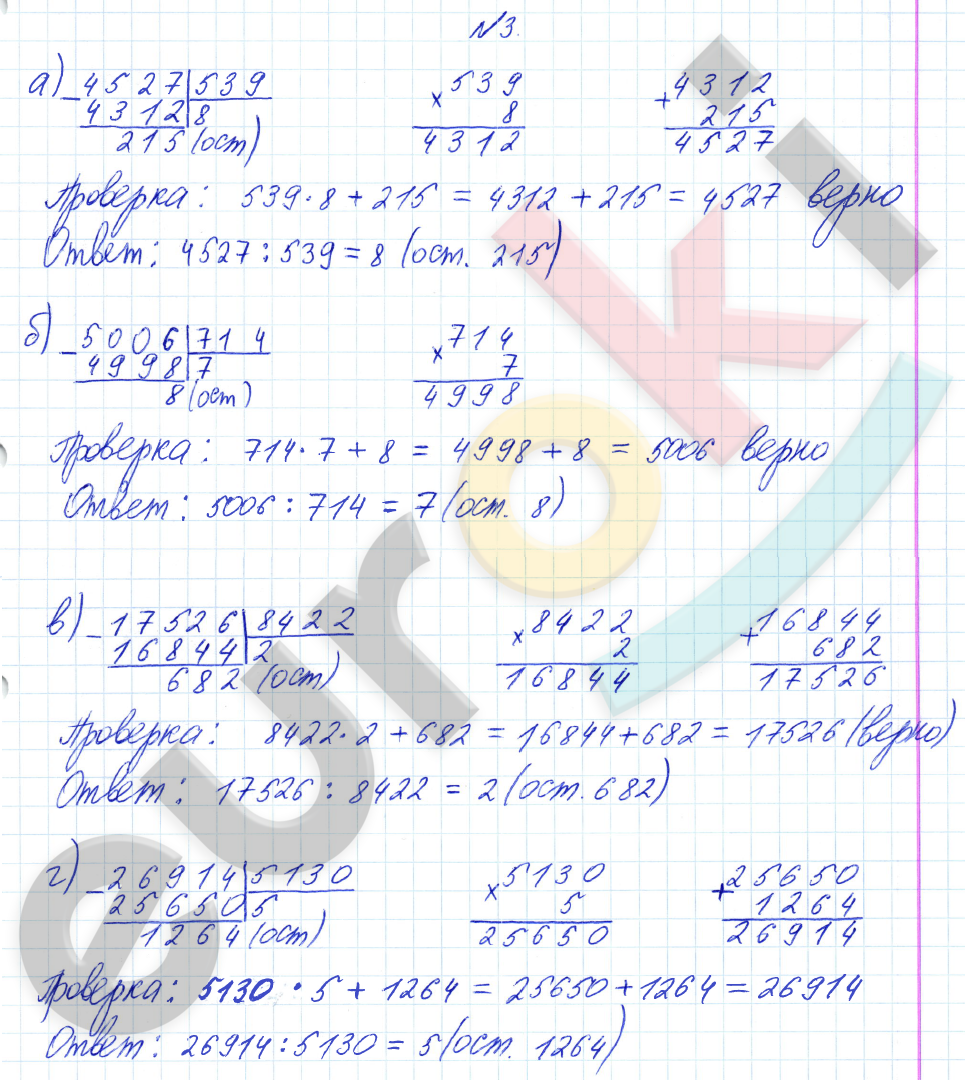 №3.
а) – 4527 | 539 × 539 + 4312
4312 | 8 8 215
215 (ост) 4312 4527
Проверка: 539 · 8 + 215 = 4312 + 215 = 4527 верно
Ответ: 4527 : 539 = 8 (ост. 215)
б) – 5006 | 714 × 714
4998 | 7 7
8 (ост) 4998
Проверка: 714 · 7 + 8 = 4998 + 8 = 5006 верно
Ответ: 5006 : 714 = 7 (ост. 8)
в) – 17526 | 8422 × 8422 + 16844
16844 | 2 2 682
682 (ост) 16844 17526
Проверка: 8422 · 2 + 682 = 16844 + 682 = 17526 (верно)
Ответ: 17526 : 8422 = 2 (ост. 682)
г) – 26914 | 5130 × 5130 + 25650
25650 | 5 5 1264
1264 (ост) 25650 26914
Проверка: 5130 · 5 + 1264 = 25650 + 1264 = 26914
Ответ: 26914 : 5130 = 5 (ост. 1264)
euroki